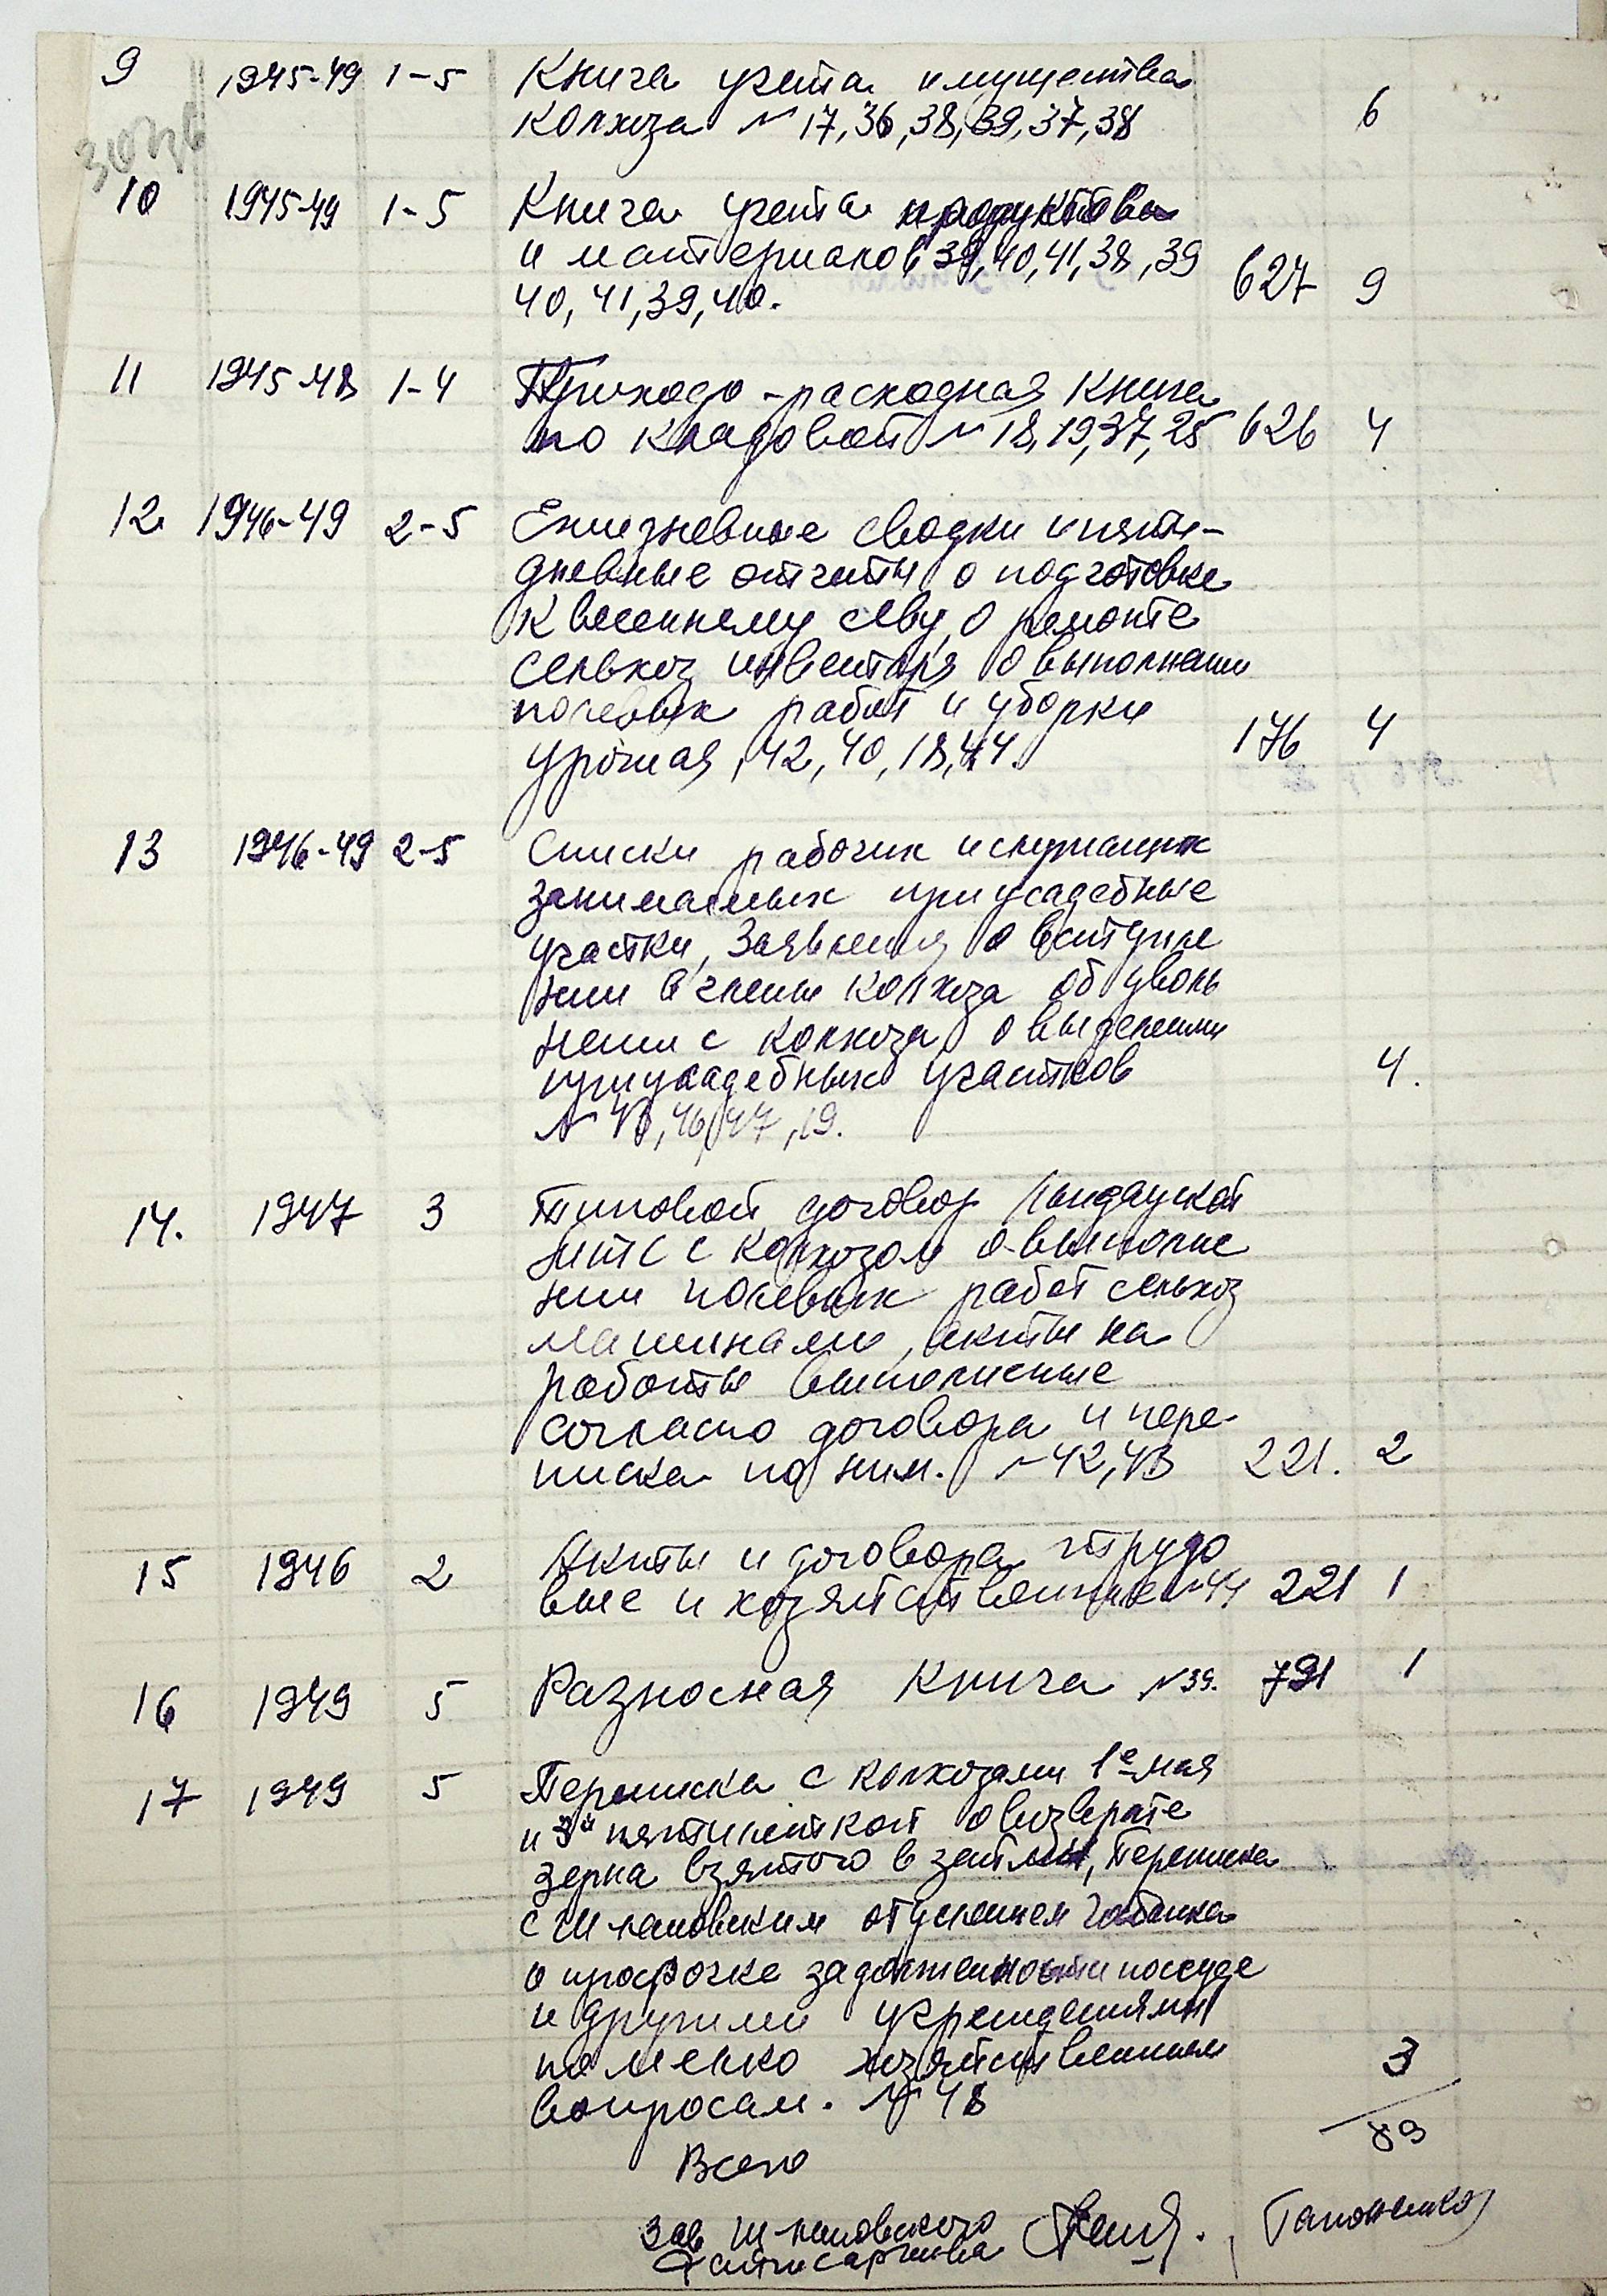 9 1945-49 1-5 Книга учета имущества
колхоза № 17, 36, 38, 39, 37, 38 6
10 1945-49 1-5 Книга учета продуктов
и материалов 39, 40, 41, 38, 39 627 9
40, 41, 39, 40.
11 1945-48 1-4 Приходо-расходная книга
по кладовой № 18, 19, 37, 25 626 4
12. 1946-49 2-5 Ежедневные сводки и пяти-
дневные отчеты о подготовке
к весеннему севу, о ремонте
сельхоз инвентаря о выполнении
полевых работ и уборки
урожая, 42, 40, 18, 44. 176 4
13 1946-49 2-5 Списки рабочих и служащих
занимаемых приусадебные
участки, Заявления о вступле
нии в члены колхоза об уволь
нении с колхоза о выделении
приусадебных участков 4.
№ 46, 47, 19.
14. 1947 3 Типовой договор
МТС с колхозом о выполне
нии полевых работ сельхоз
машинами, акты на
работы выполненные
согласно договора и пере-
писка по ним. № 42, 43 221. 2
15 1946 2 Акты и договора трудо
вые и хозяйственные № 44 221 1
16 1949 5 Разносная книга № 39. 791 1
17 1949 5 Переписка с колхозами 1е мая
и 3й пятилеткой о возврате
зерна взятого в займы, Переписка
с Шполовским отделением Госбанка
о просрочке задолженности по ссуде
и другими учреждениями
по мелко хозяйственным 3
вопросам. № 48
Всего
Зав
Гапоненко